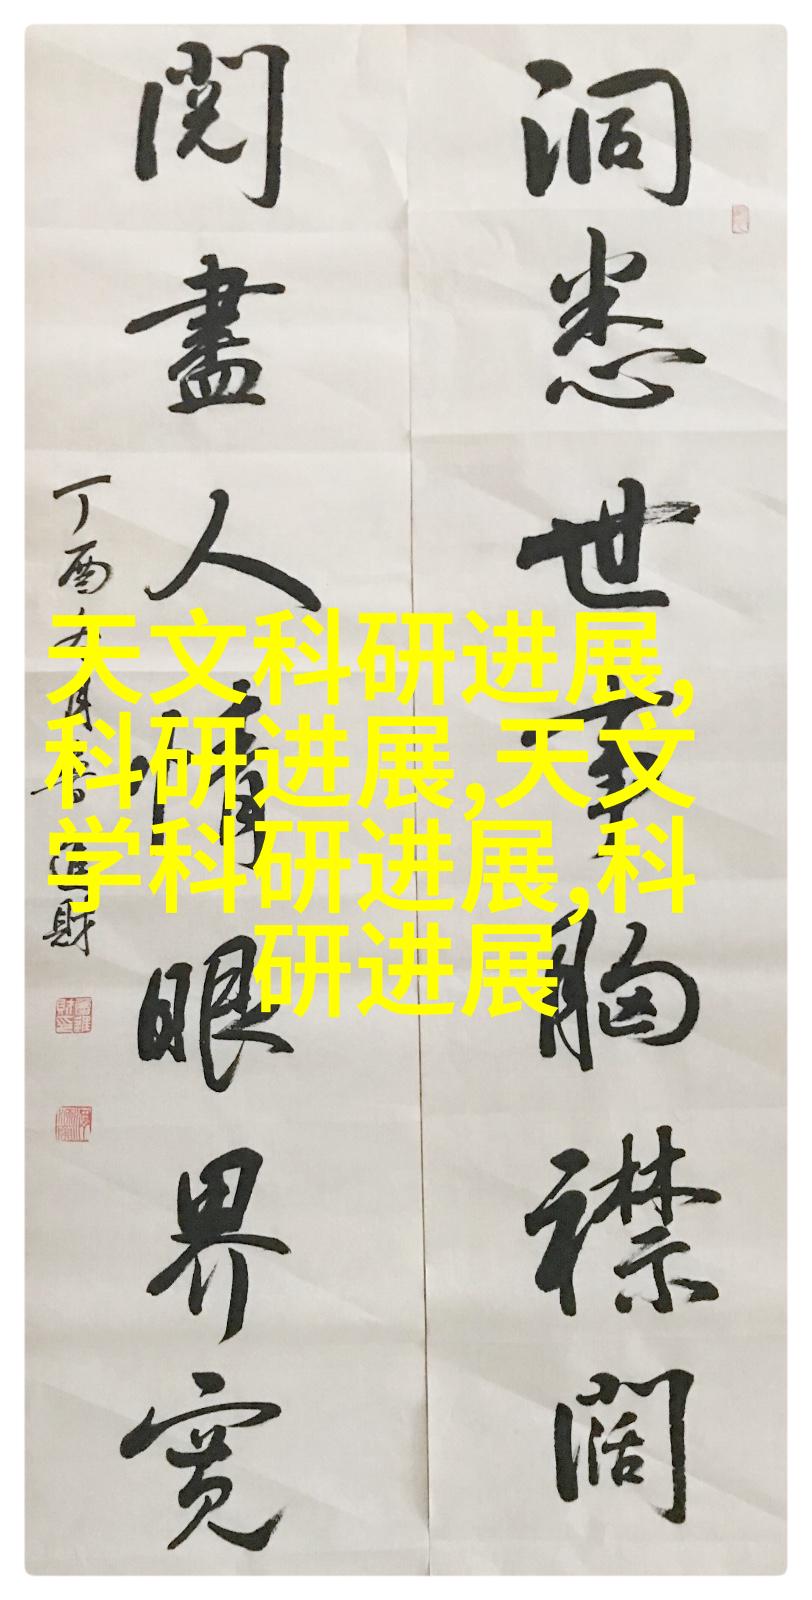 洞悉世事胸襟阔
閱盡人情眼界寬
丁酉年月
財
天文科研进展,
科研进展,天文
学科研进展,科
研进展